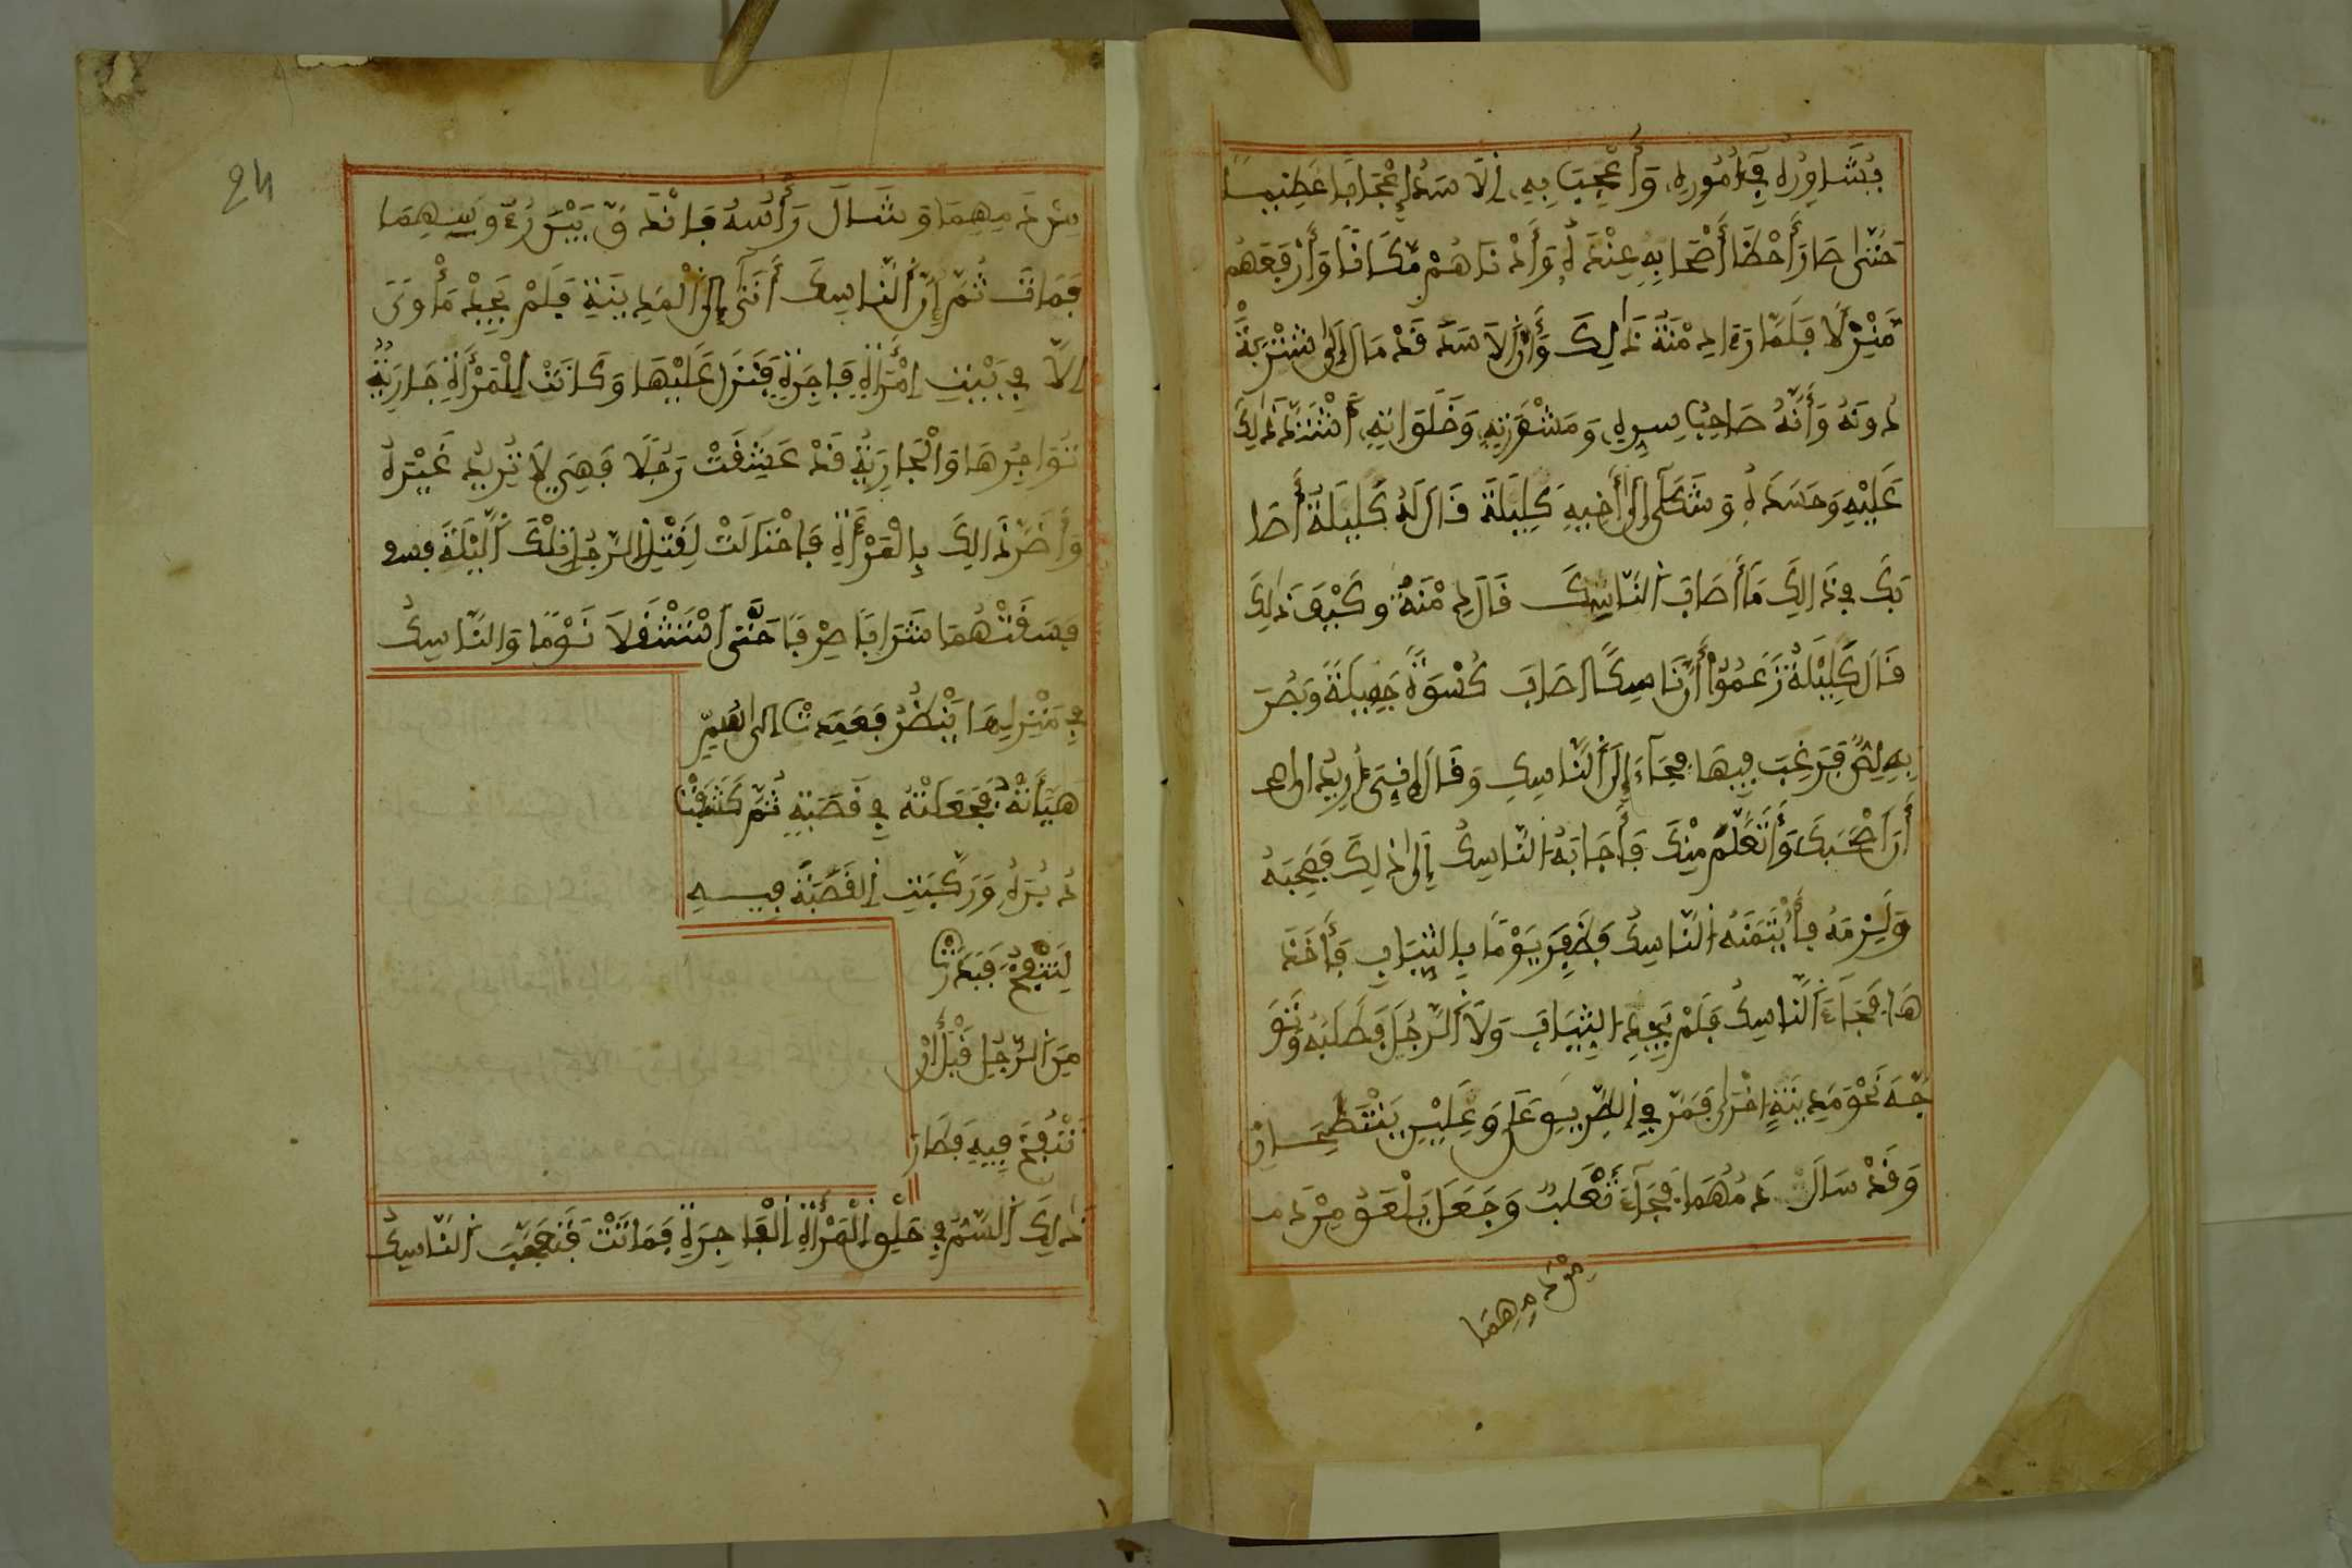 فيشاوره في أموره وأعجب به الاسد إعجابا عظيما
حتى صار أحظا أصحابه عنده وأدناهم مكانا وأرفعهم
منزلا فلما راى دمنة ذالك وأن الاسد قد مال إلى شتربة
دونه وأنه صاحب سره ومشورته وخلواته اشتد ذلك
عليه وحسده وشكى إلى أخيه كليلة قال له كليلة أصا
بك في ذالك ما أصاب الناسك قال دمنة وكيف ذلك
قال كليلة زعموا أن ناسكا اصاب كسوة جميلة وبصر
به لص فرغب فيها فجاء إلى الناسك وقال له إني أريد
أن أصحبك وأتعلم منك فأجابه الناسك إلى ذلك فصحبه
ولزمه فأيتمنه الناسك فظفر يوما بالثياب فأخذ
ها فجاء الناسك فلم يجد الثياب ولا الرجل فطلبه وتو
جه نحو مدينة اخرى فمر في الطريق على وعلين ينتطحان
وقد سال دمهما فجاء ثعلب وجعل يلعق من دم
من دميهما
24
من دميهما وشال رأسه فاندق بين رءوسهما
فمات ثم إن الناسك أتى إلى المدينة فلم يجد مأوى
إلا في بيت امرأة فاجرة فنزل عليها وكانت للمرأة جارية
تواجرها والجارية قد عشقت رجلا فهي لا تريد غيره
وأضر ذالك بالمرأة فاحتالت لقتل الرجل تلك الليلة فسـ
فسقتهما شرابا صرفا حتى استثقلا نوما والناسك
في منزلها ينظر فعمدت إلى سم
هيأته فجعلته في قصبة ثم كشفت
دبره وركبت القصبة فيه
لتنفخ فبدرت
من الرجل قبل أن
تنفخ فيه فطار
ذلك السم في حلق المرأة الفاجرة فماتت فتعجب الناسك